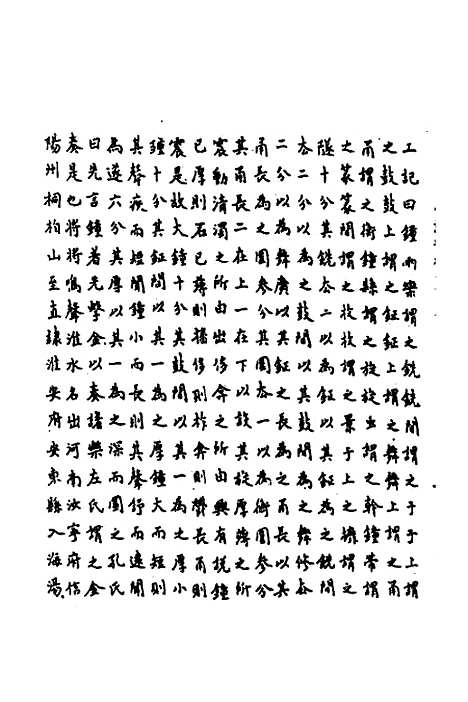 工記曰鍾兩欒謂之銑銑間謂之于于上謂
之鼓鼓上謂之鉦鉦上謂之舞舞上謂之甬
甬謂之衡鍾縣謂之旋旋虫謂之幹鍾帶謂
之篆篆間謂之枚枚謂之景于上之攠謂之
隧十分其銑厺二以為鉦以其鉦為之銑間
厺二分以為之鼓間以其鼓間為之舞修厺
二分以為舞廣以其鉦之長為之甬長以其
甬長為之圍參分其圍厺一以為衡圍參分
其甬長二在上一在下以設其旋厚薄之所
震動清濁之所由出侈弇之所由興有說鍾
已厚則石已薄則播侈則柞弇則鬱長甬則
震是故大鍾十分其鼓間以其一為之厚小
鍾十分其鉦間以其一為之厚鍾大而短則
其聲疾而短聞鍾小而長則其聲舒而遠聞
為遂六分其厚以其一為之深而圜之孔氏
曰先言鍾者先擊金以奏諸樂左氏謂之金
奏是也將將鳴聲淮水名出河南汝寧府信
陽州桐柏山至直隸淮安府安東縣入海湯